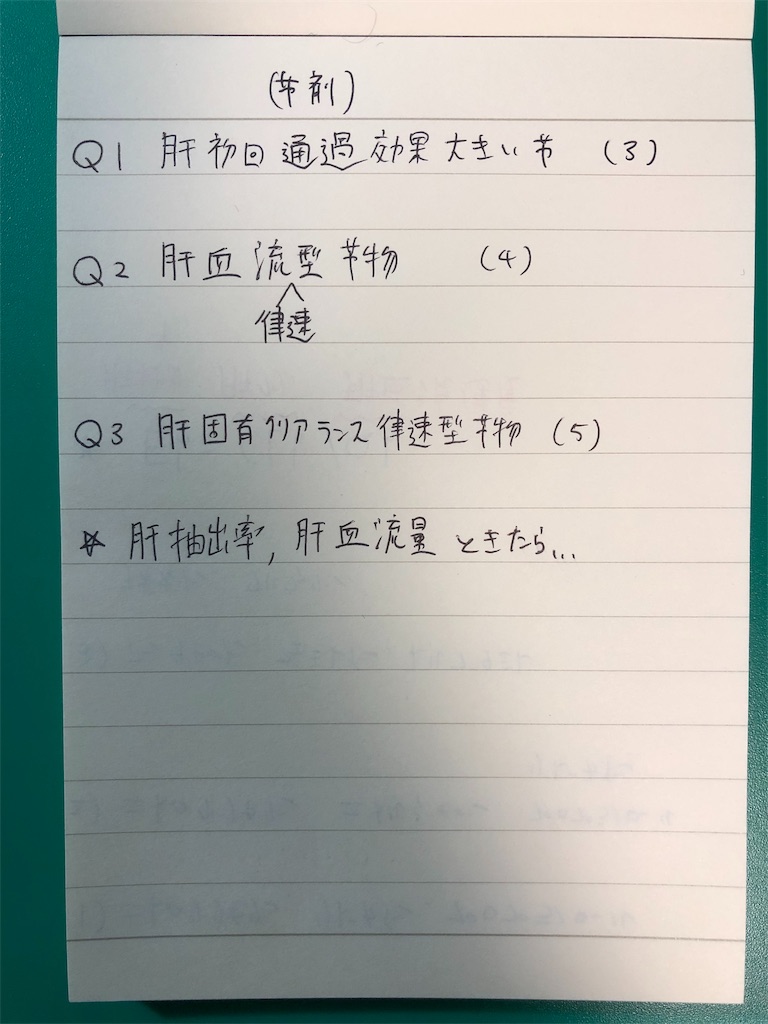 (薬剤)
Q1 肝初回通過効果大きい薬 (3)
Q2 肝血流型薬物 (4)
律速
Q3 肝固有クリアランス律速型薬物 (5)
☆ 肝抽出率, 肝血流量 ときたら...